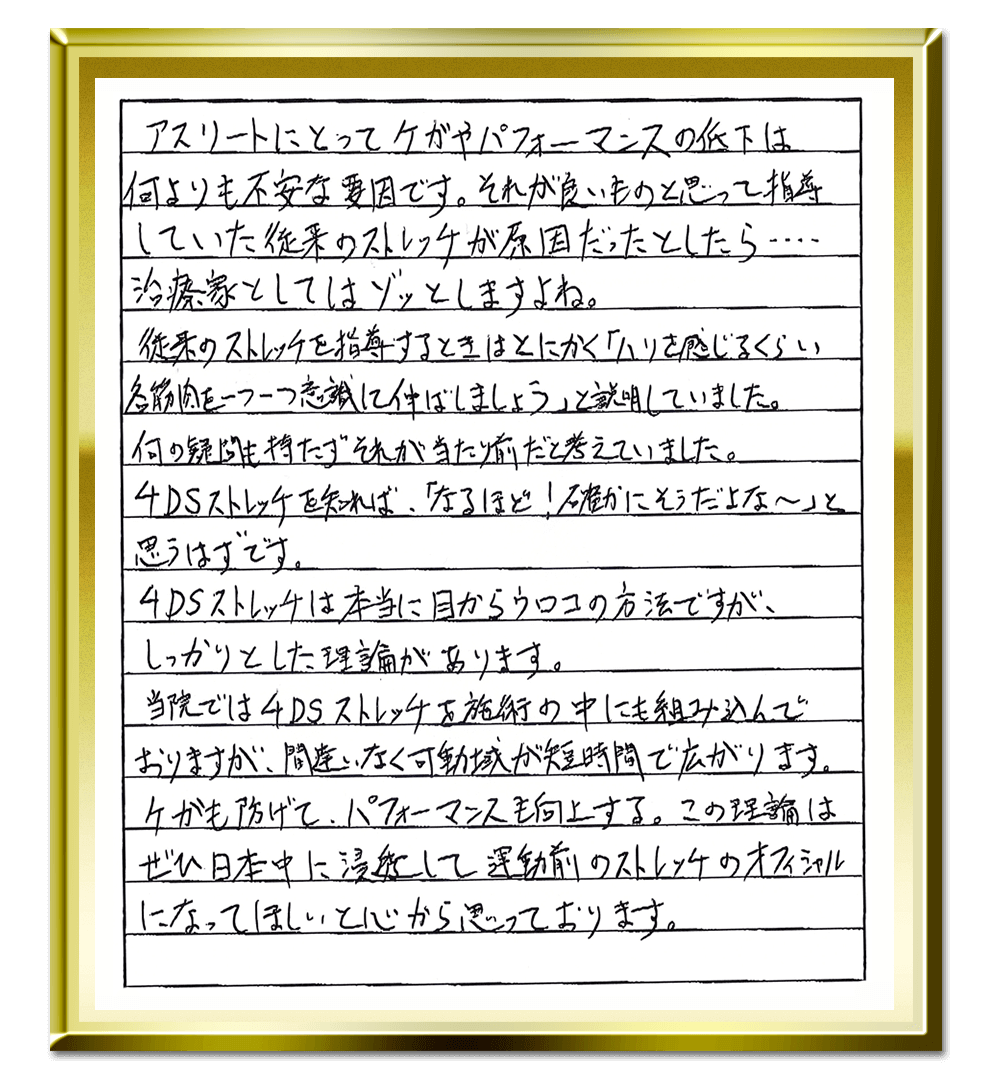 アスリートにとってケガやパフォーマンスの低下は
何よりも不安な要因です。それが良いものと思って指導
していた従来のストレッチが原因だったとしたら‥‥
治療家としてはゾッとしますよね。
従来のストレッチを指導するときはとにかく「ハリを感じるくらい
各筋肉を一つ一つ意識して伸ばしましょう」と説明していました。
何の疑問も持たずそれが当たり前だと考えていました。
4DSストレッチを知れば、「なるほど！確かにそうだよな～」と
思うはずです。
4DSストレッチは本当に目からウロコの方法ですが、
しっかりとした理論があります。
当院では4DSストレッチを施術の中にも組み込んで
おりますが、間違いなく可動域が短時間で広がります。
ケガも防げて、パフォーマンスも向上する。この理論は
ぜひ日本中に浸透して運動前のストレッチのオフィシャル
になってほしいと心から思っております。